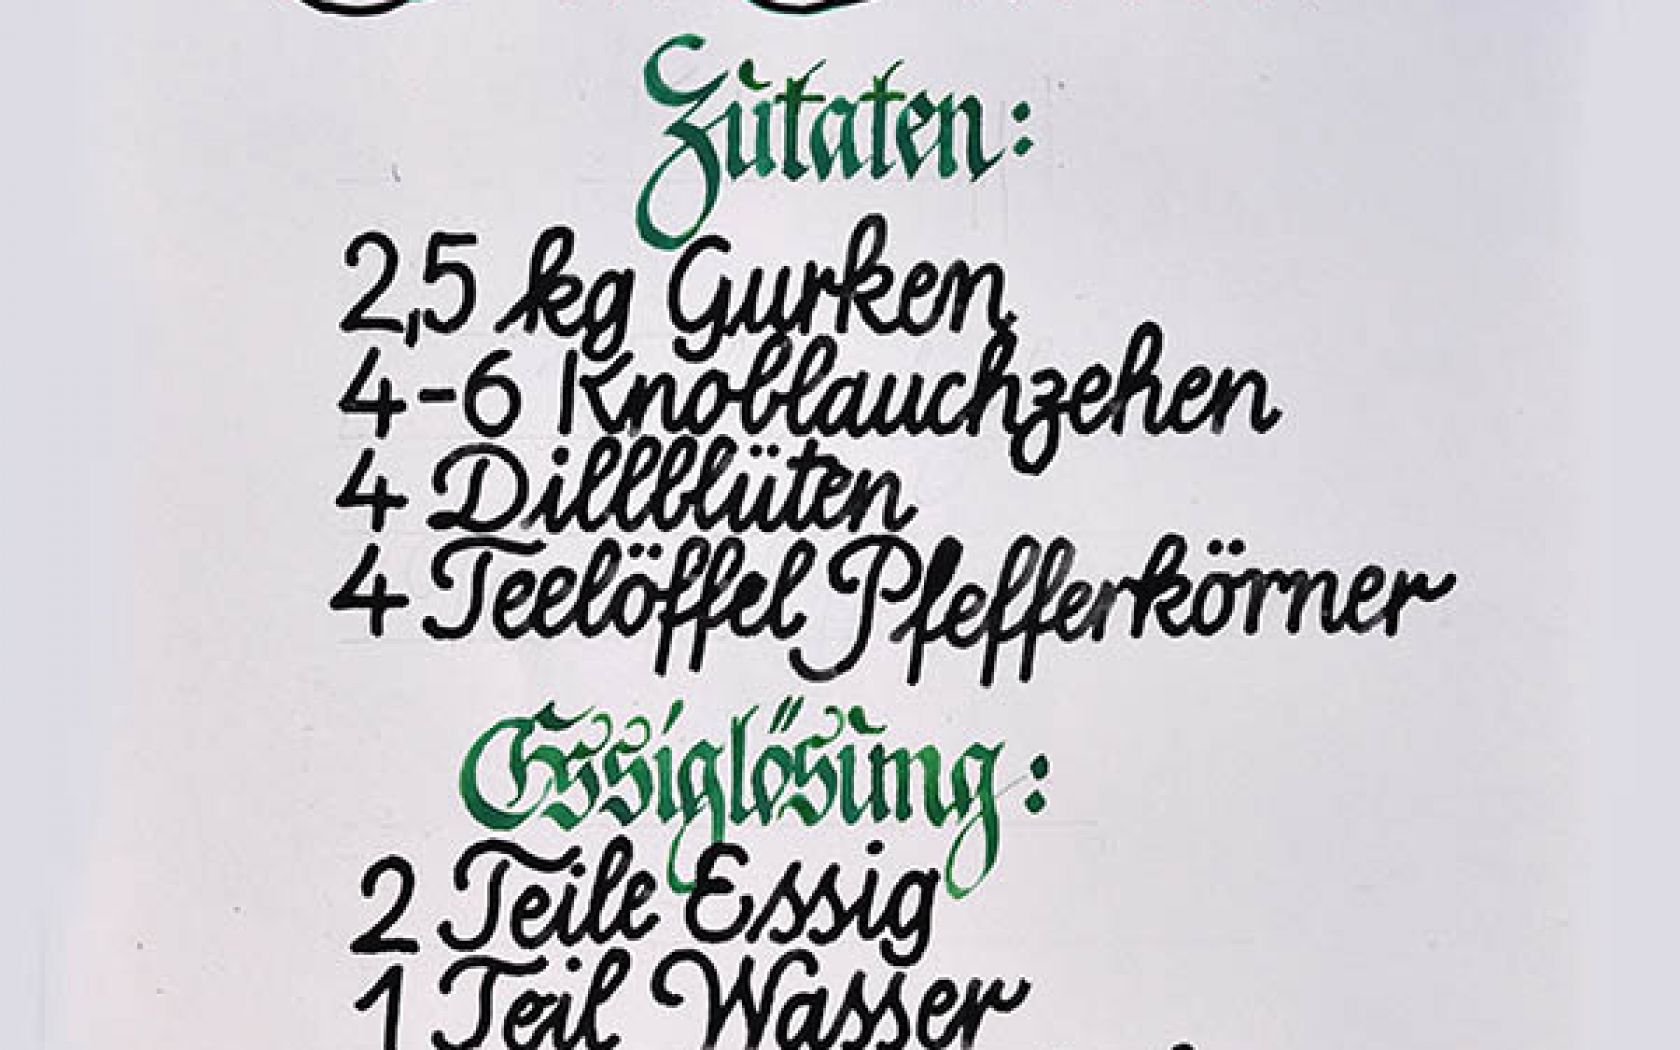 Zutaten:
2,5 kg Gurken
4-6 Knoblauchzehen
4 Dillblüten
4 Teelöffel Pfefferkörner
Essiglösung:
2 Teile Essig
1 Teil Wasser